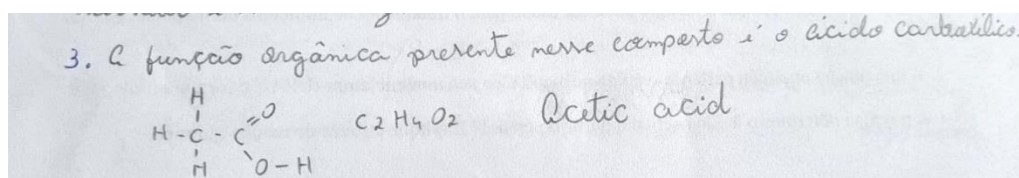 3. A função orgânica presente nesse composto é o ácido carboxílico.
H
H - C - C =O
H O - H
C2H4O2 Acetic acid